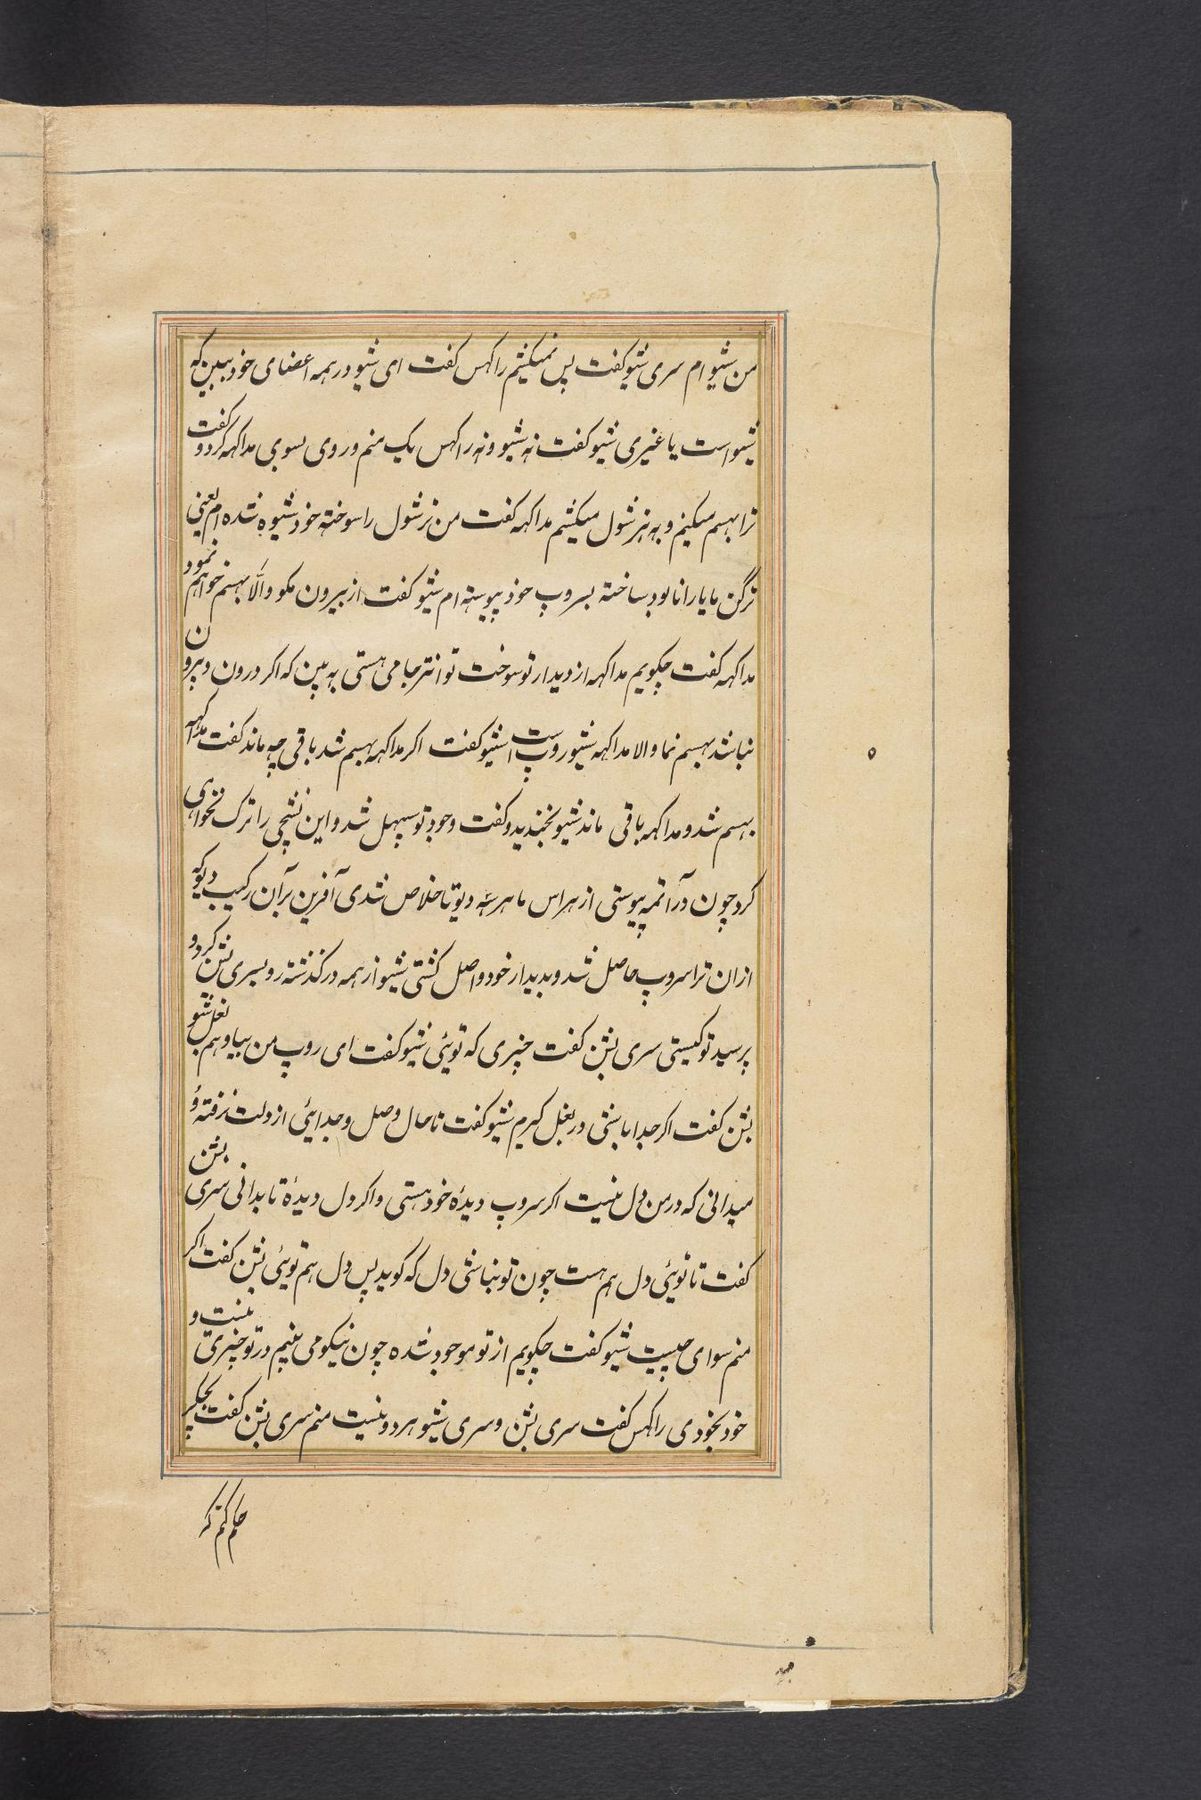 من شیو ام سری شیو گفت پس نمیکشم راکهس گفت ای شیو در همه اعضای خود ببین که
شیو است یا غیری شیو گفت نه شیو و نه راکهس یک منم و روی بسوی مداکهه کرد و گفت
ترا بهسم میکنم و به ترشول میکشم مداکهه گفت من ترشول را سوخته خود شیوه شده ام یعنی
ترگن مایا را نابود ساخته بسروپ خود پیوسته ام شیو گفت از بیرون مکو والّا بهسم خواهم نمود
مداکهه گفت چکویم مداکهه از دیدار تو سوخت تو انترجامی هستی به بین که اکر درون و بیرون
نباشد بهسم نما والا مداکهه شیو روپ است شیو گفت اکر مداکهه بهسم شد باقی چه ماند گفت مداکهه
بهسم شد و مداکهه باقی ماند شیو بخندید و گفت وجود تو سپهل شد و این نشچی را ترک نخواهی
کرد چون در آتمه پیوستی از هراس ما هر سه دیوتا خلاص شدی آفرین بر آن رکهیب دیو که
از ان ترا سروپ حاصل شد و بدیدار خود واصل کشتی شیو از همه در گذشته رو بسری بشن کرد و
پرسید تو کیستی سری بشن گفت چیزی که توئی شیو گفت ای روپ من بیا و هم بغل شو
بشن گفت اکر جدا باشی در بغل کیرم شیو گفت تا حال وصل و جدایئی از دلت نرفته و
میدانی که در من دل نیست اکر سروپ دیدهٔ خود هستی و اکر دل دیدهٔ تا بدانی سری بشن
گفت تا توئی دل هم هست چون تو نباشی دل که کوید پس دل هم توئی بشن گفت اکر
منم سوای چیست شیو گفت چکویم از تو موجود شده چون نیکو می بینم در تو چیزی نیست و
خود بخودی راکهس گفت سری بشن و سری شیو هر دو نیست منم سری بشن گفت بچکر
حکم کنم که